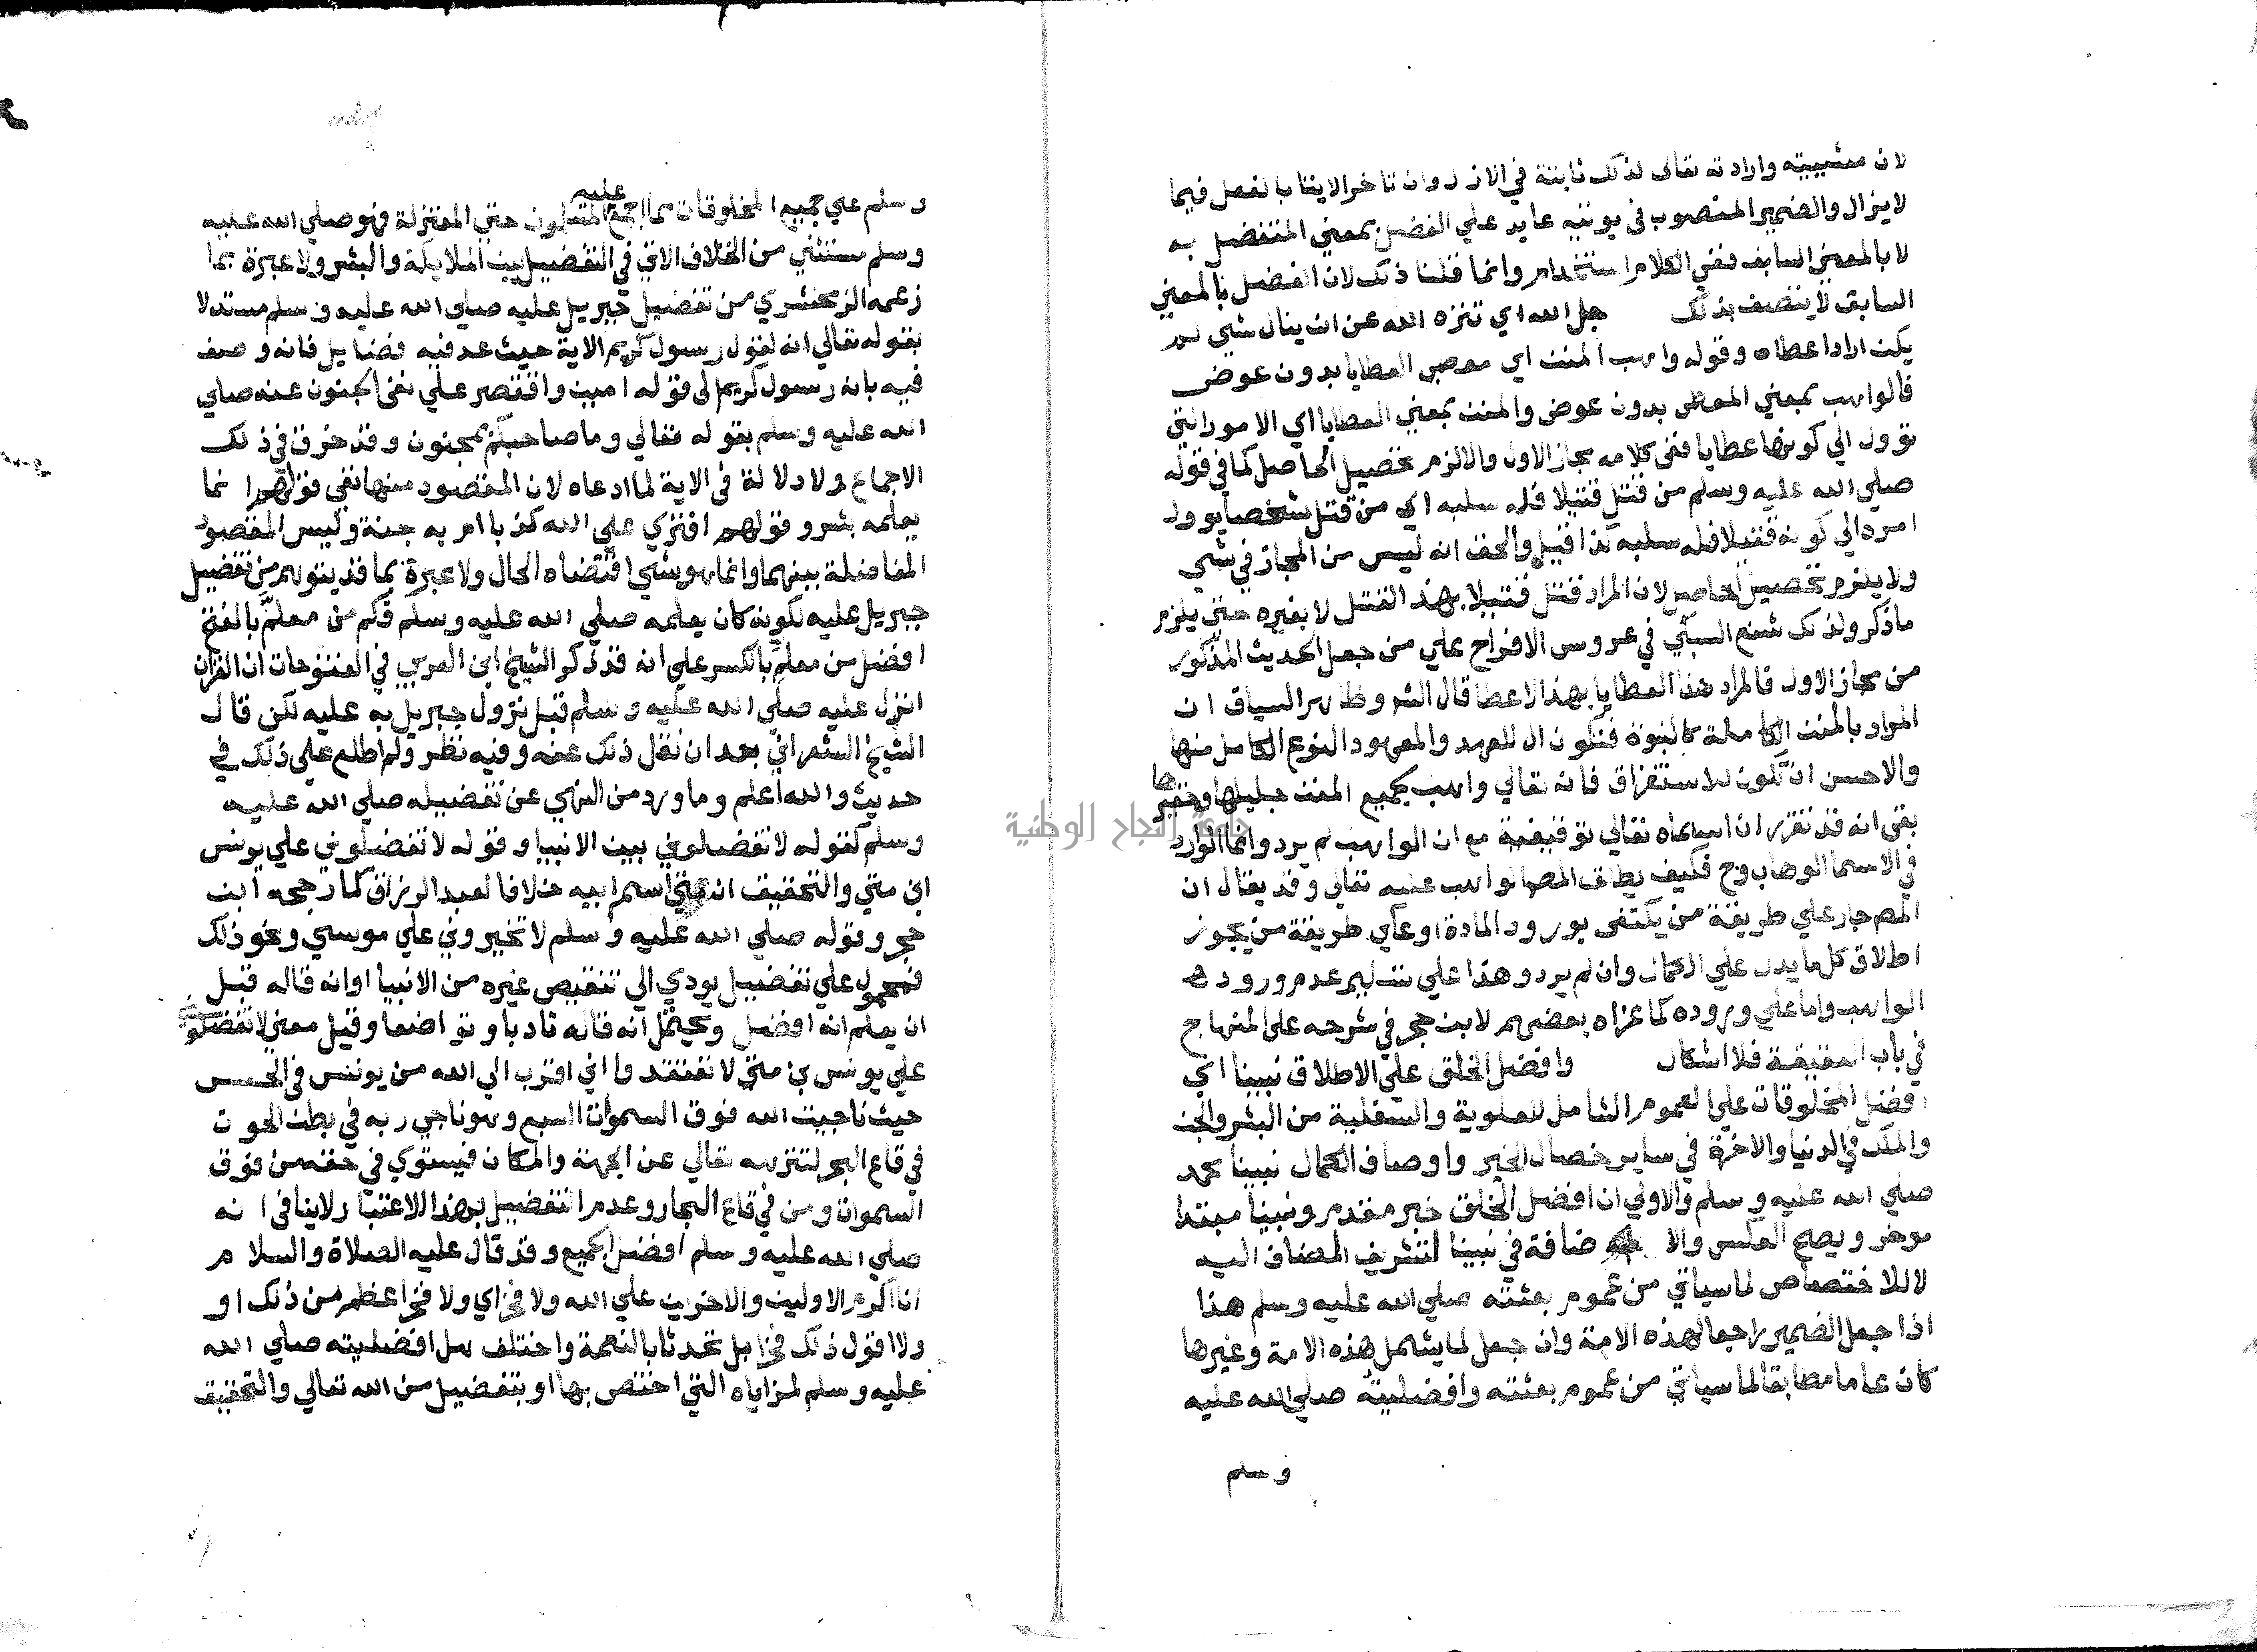 لان مشييته وارادته تعالى لذلك ثابتة في الازل وان تاخر الايتا بالفعل فيما
لايزال والضمير المنصوب في يوتيه عايد علي الفضل بمعني المتفضل به
لا بالمعني السابق ففي الكلام استخدام وانما قلنا ذلك لان الفضل بالمعني
السابق لا يتصف بذلك جل الله اي تنزه الله عن ان ينال شي لم
يكن اراد اعطاه وقوله واهب المنن اي معطي العطايا بدون عوض
فالواهب بمعني المعطي بدون عوض والمنن بمعني العطايا اي الامور التي
تؤول الي كونها عطايا ففي كلامه مجاز الاول والالزم تحصيل الحاصل كما في قوله
صلي الله عليه وسلم من قتل قتيلا فله سلبه اي من قتل شخصا يوول
امره الي كونه قتيلا فله سلبه كذا قيل والحق انه ليس من المجاز في شي
ولا يلزم تحصيل الحاصل لان المراد قتل قتيلا بهذا القتل لا بغيره حتي يلزم
ماذكر ولذلك شنع السبكي في عروس الافراح علي من جعل الحديث المذكور
من مجاز الاول فالمراد هنا العطايا بهذا الاعطا قال الش وظاهر السياق ان
المراد بالمنن الكاملة كالنبوة فتكون ال للعهد والمعهود النوع الكامل منها
والاحسن ان تكون للاستغراق فانه تعالي واهب بجميع المنن جليلها وحقيرها
بقي انه قد تقرر ان اسماه تعالي توقيفية مع ان الواهب لم يرد وانما الوارد
في الاسما الوهاب وح فكيف يطلق المص الواهب عليه تعالي وقد يقال ان
المص جار علي طريقة من يكتفي بورود المادة او علي طريقة من يجوز
اطلاق كل ما يدل علي الكمال وان لم يرد وهذا علي تسليم عدم ورود
الواهب واما علي وروده كما عزاه بعضهم لابن حجر في شرحه علي المنهاج
في باب العقيقة فلا اشكال وافضل الخلق علي الاطلاق نبينا اي
افضل المخلوقات علي العموم الشامل للعلوية والسفلية من البشر والجن
والملك في الدنيا والاخرة في ساير خصال الخير واوصاف الكمال نبينا محمد
صلي الله عليه وسلم والاولي ان افضل الخلق خبر مقدم ونبينا مبتدا
موخر ويصح العكس والا ضافة في نبينا لتشريف المضاف اليه
لا للاختصاص لما سياتي من عموم بعثته صلي الله عليه وسلم هذا
اذا جعل الضمير راجعا لهذه الامة وان جعل لما يشمل هذه الامة وغيرها
كان عاما مطابقا لما سياتي من عموم بعثته وافضليته صلي الله عليه
وسلم
وسلم علي جميع المخلوقات مما اجمع عليه المسلمون حتي المعتزلة فهو صلي الله عليه
وسلم مستثني من الخلاف الاتي في التفضيل بين الملايكة والبشر ولا عبرة بما
زعمه الزمخشري من تفضيل جبريل عليه صلي الله عليه وسلم مستدلا
بقوله تعالي انه لقول رسول كريم الاية حيث عد فيه فضايل فانه وصف
فيه بانه رسول كريم الى قوله امين واقتصر علي نفي الجنون عنه صلي
الله عليه وسلم بقوله تعالي وما صاحبكم بمجنون وقد خرق في ذلك
الاجماع ولا دلالة في الاية لما ادعاه لان المقصود منها نفي قولهم انما
يعلمه بشر وقولهم افتري علي الله كذبا ام به جنة وليس المقصود
المفاضلة بينهما وانما هو شي اقتضاه الحال ولا عبرة بما قد يتوهم من تفضيل
جبريل عليه لكونه كان يعلمه صلي الله عليه وسلم فكم من معلم بالفتح
افضل من معلم بالكسر علي انه قد ذكر الشيخ ابن العربي في الفتوحات ان القران
انزل عليه صلي الله عليه وسلم قبل نزول جبريل به عليه لكن قال
الشيخ الشعراني بعد ان نقل ذلك عنه وفيه نظر ولم اطلع علي ذلك في
حديث والله اعلم وما ورد من النهي عن تفضيله صلي الله عليه
وسلم كقوله لا تفضلوني بين الانبيا وقوله لا تفضلوني علي يونس
ابن متي والتحقيق ان متي اسم ابيه خلافا لعبد الرزاق كما رجحه ابن
حجر وقوله صلي الله عليه وسلم لا تخيروني علي موسي ونحو ذلك
فمحمول علي تفضيل يودي الي تنقيص غيره من الانبيا او انه قاله قبل
ان يعلم انه افضل ويحتمل انه قاله تادبا وتواضعا وقيل معني لا تفضلوني
علي يونس بن متي لا تعتقدوا اني اقرب الي الله من يونس في الحس
حيث ناجيت الله فوق السموات السبع وهو ناجي ربه في بطن الحوت
في قاع البحر لتنزهه تعالي عن الجهة والمكان فيستوي في حقه من فوق
السموات ومن في قاع البحار وعدم التفضيل بهذا الاعتبار لاينافي انه
صلي الله عليه وسلم افضل الجميع وقد قال عليه الصلاة والسلام
انا اكرم الاولين والاخرين علي الله ولا فخر اي ولا فخر اعظم من ذلك او
ولا اقول ذلك فخرا بل تحدثا بالنعمة واختلف هل افضليته صلي الله
عليه وسلم لمزاياه التي اختص بها او بتفضيل من الله تعالي والتحقيق
جامعة النجاح الوطنية